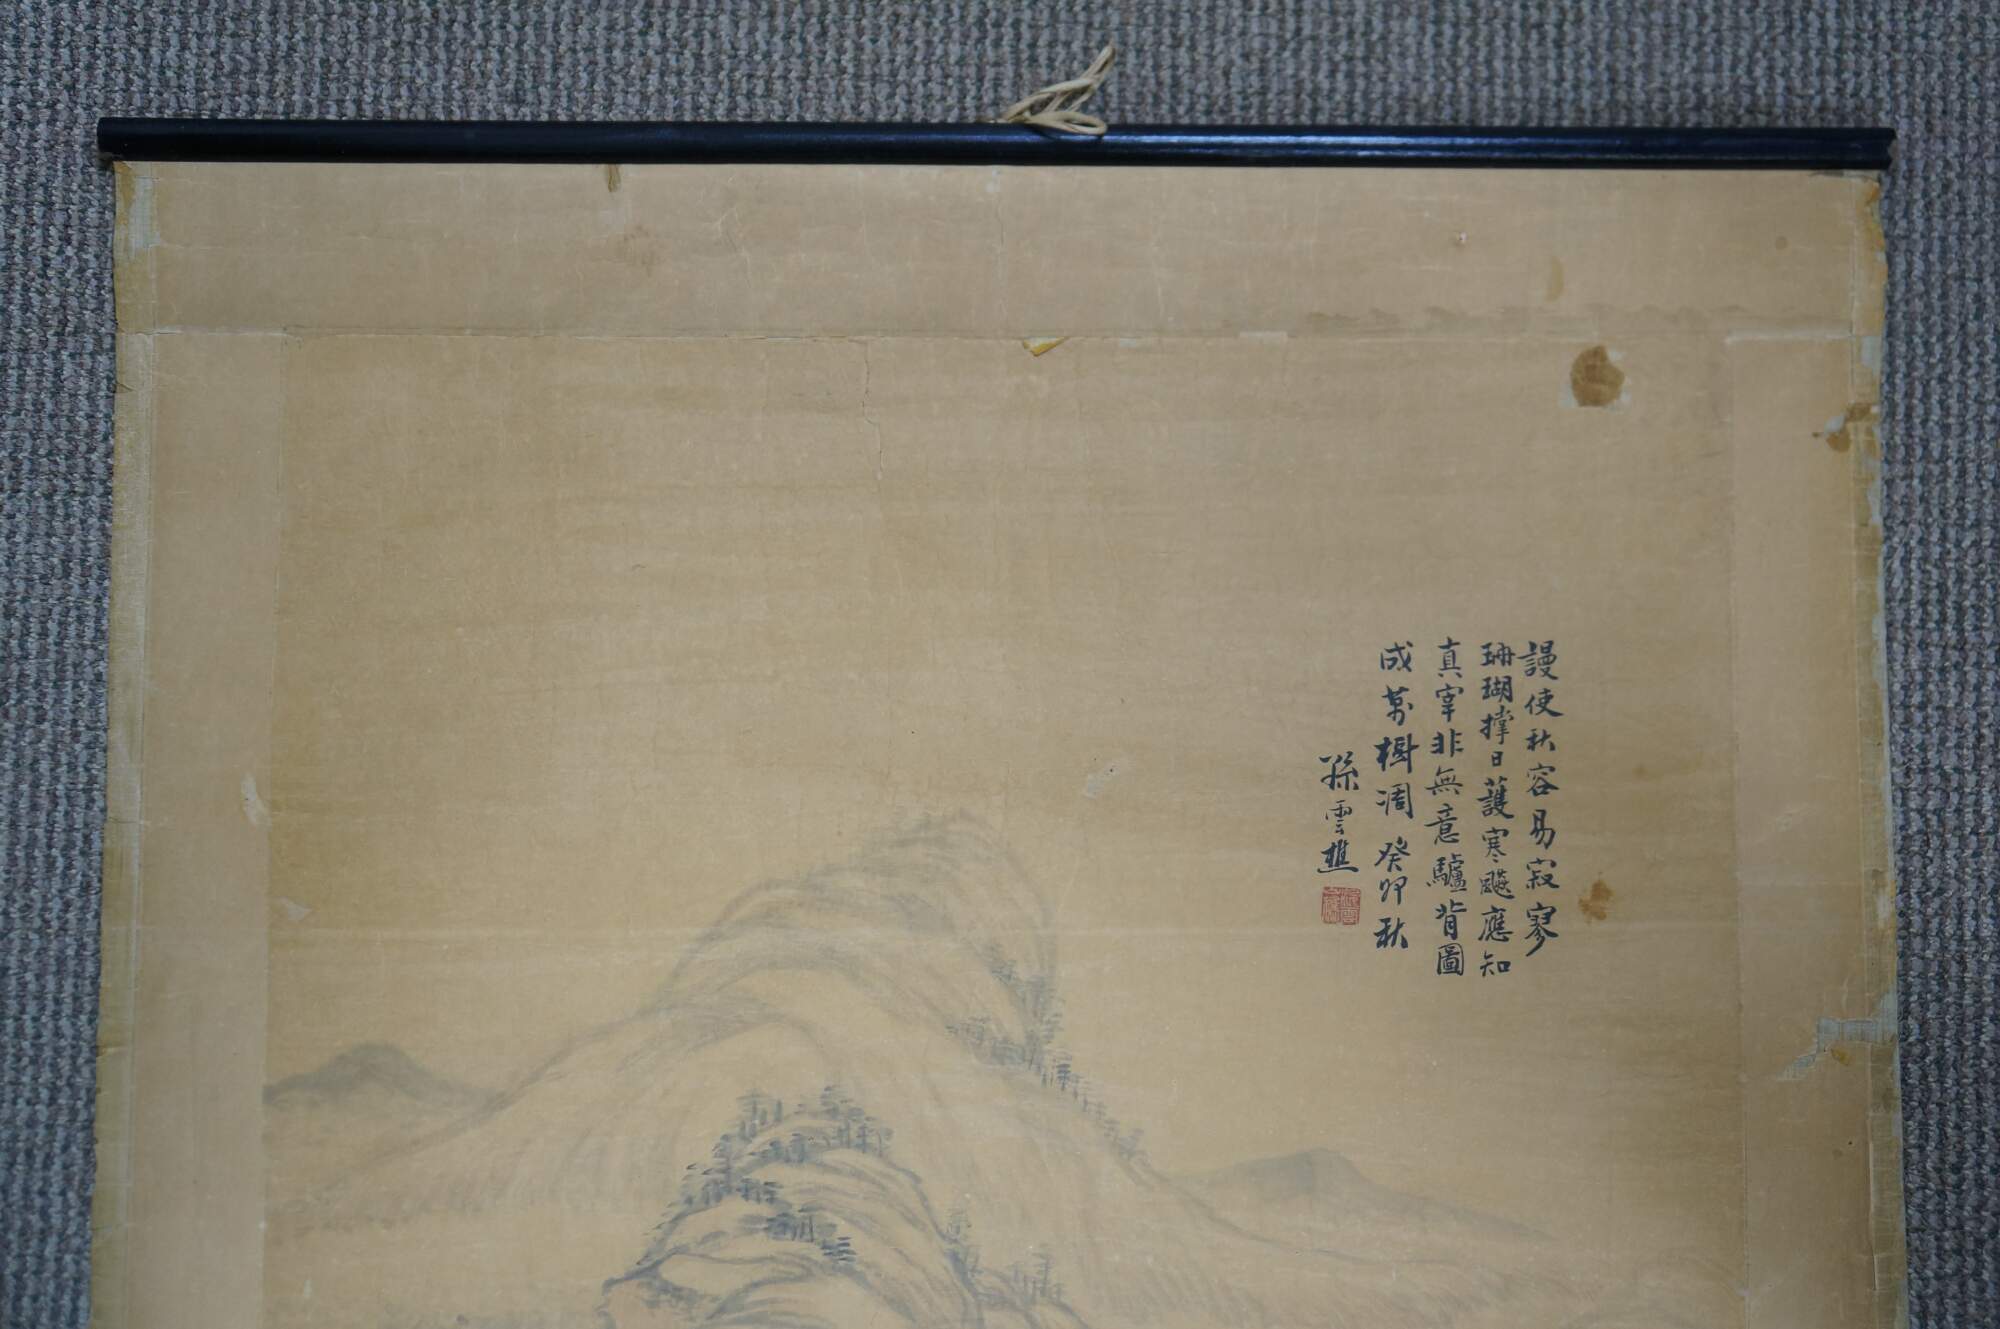 謾使秋容易寂寥
珊瑚撑日護寒飈應知
真宰非無意驢背圖
成萬樹凋癸卯秋
孫雲樵